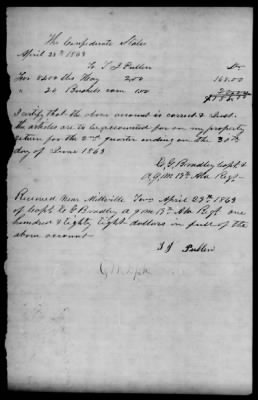 The Confederate States
April 25th 1863
To T. J. Pullen Dr
For 8400 lbs Hay 2.00 168.00
" 20 Bushels corn 1.00 20.00
$188.00
I certify that the above account is correct & Just.
the articles are to be accounted for on my property
return for the 2nd quarter ending on the 30th
day of June 1863
G. Bradley Capt &
A.Q.M. 13th Ala Regt
Received Near Millville Ten April 25th 1863
of Capt G Bradley a q m 13th Ala Regt one
hundred & Eighty Eight dollars in full of the
above account
T J Pullen